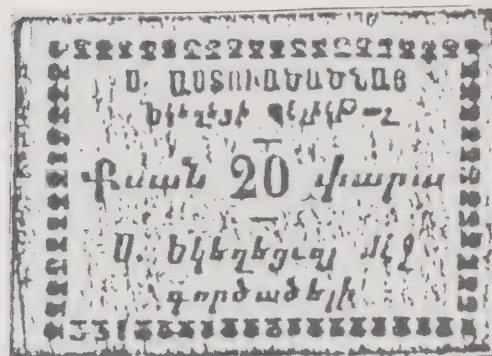 Ս. ԱՍՏՈՒԱԾԱԾՆԱՅ
Եկեղեցի
Քսան 20 փարա
Ս. Եկեղեցւոյ մէջ
գործածելի